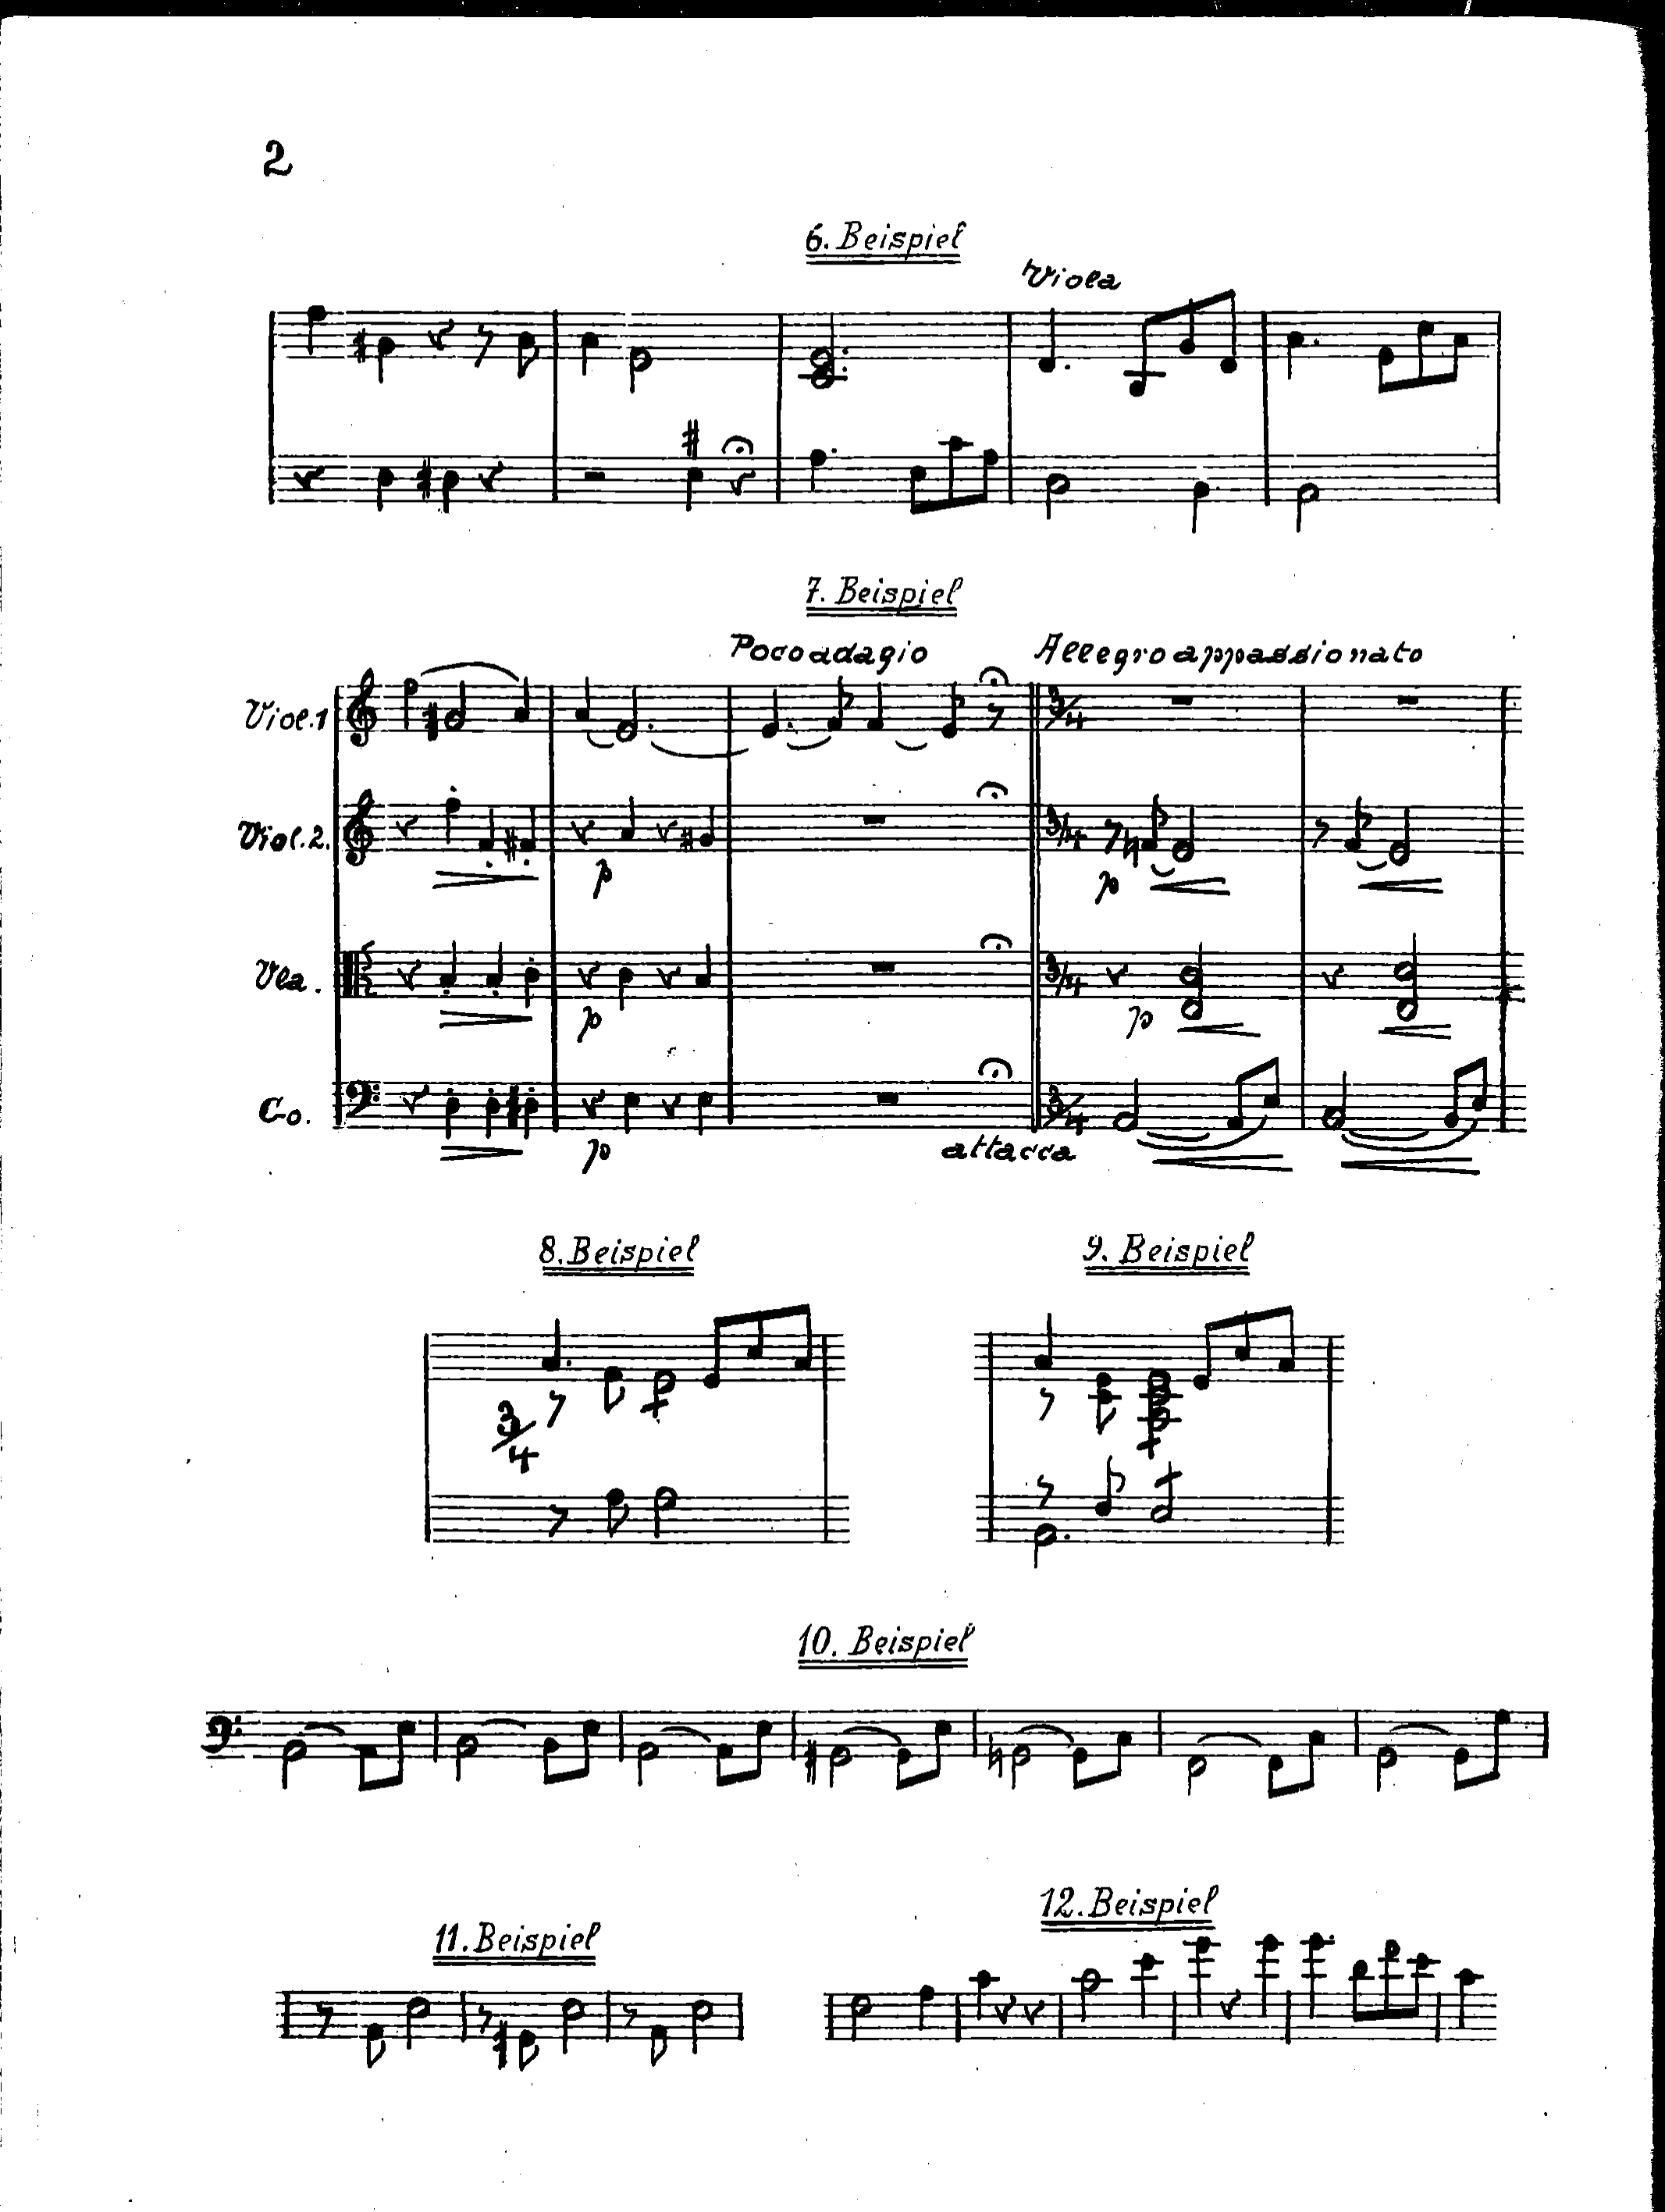 2
6. Beispiel
Viola
7. Beispiel
Poco adagio Allegro appassionato
Viol. 1
3/4
Viol. 2.
3/4
p p
Vla.
3/4
p p
Co.
3/4
p attacca
8. Beispiel 9. Beispiel
3/4
10. Beispiel
12. Beispiel
11. Beispiel